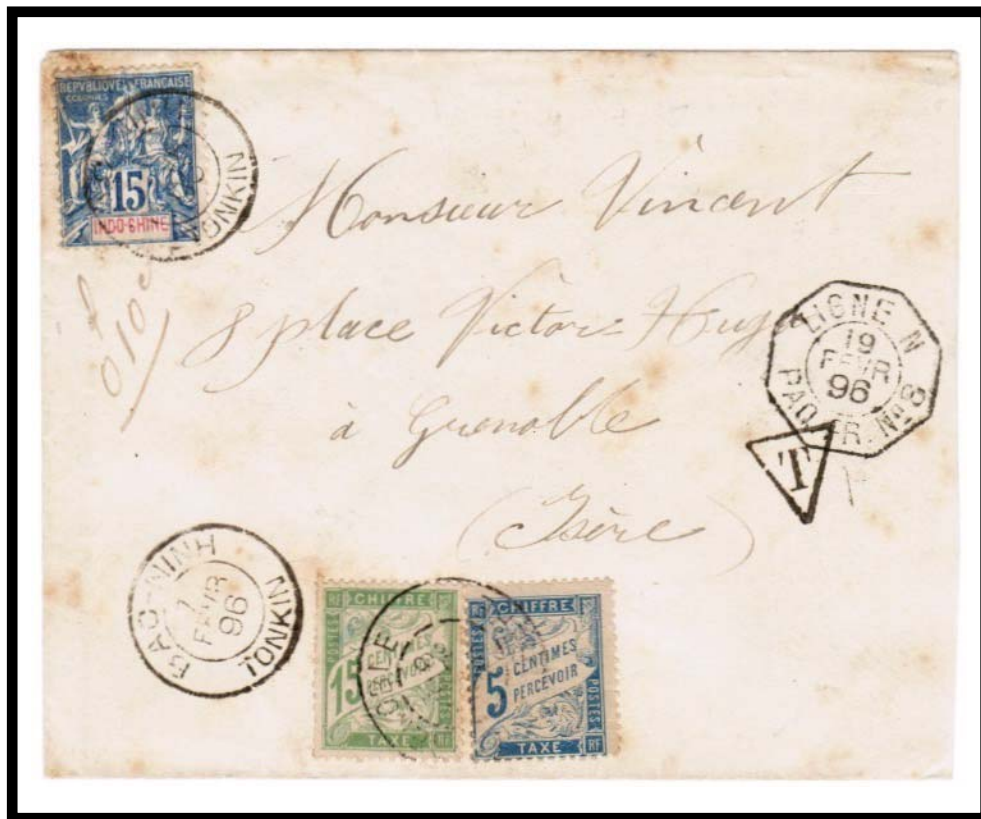 REPVBLIQVE FRANÇAISE
COLONIES
15
INDO-CHINE
TONKIN
Monsieur Vincent
8 place Victor Hugo
à Grenoble
(Isère)
LIGNE N
19
FEVR
96
PAQ. FR. Nº 8
T
BAC-NINH
1
FEVR
96
TONKIN
CHIFFRE
15 CENTIMES
PERCEVOIR
POSTES
TAXE
RF
CHIFFRE
5 CENTIMES
PERCEVOIR
POSTES
POSTES
TAXE
RF